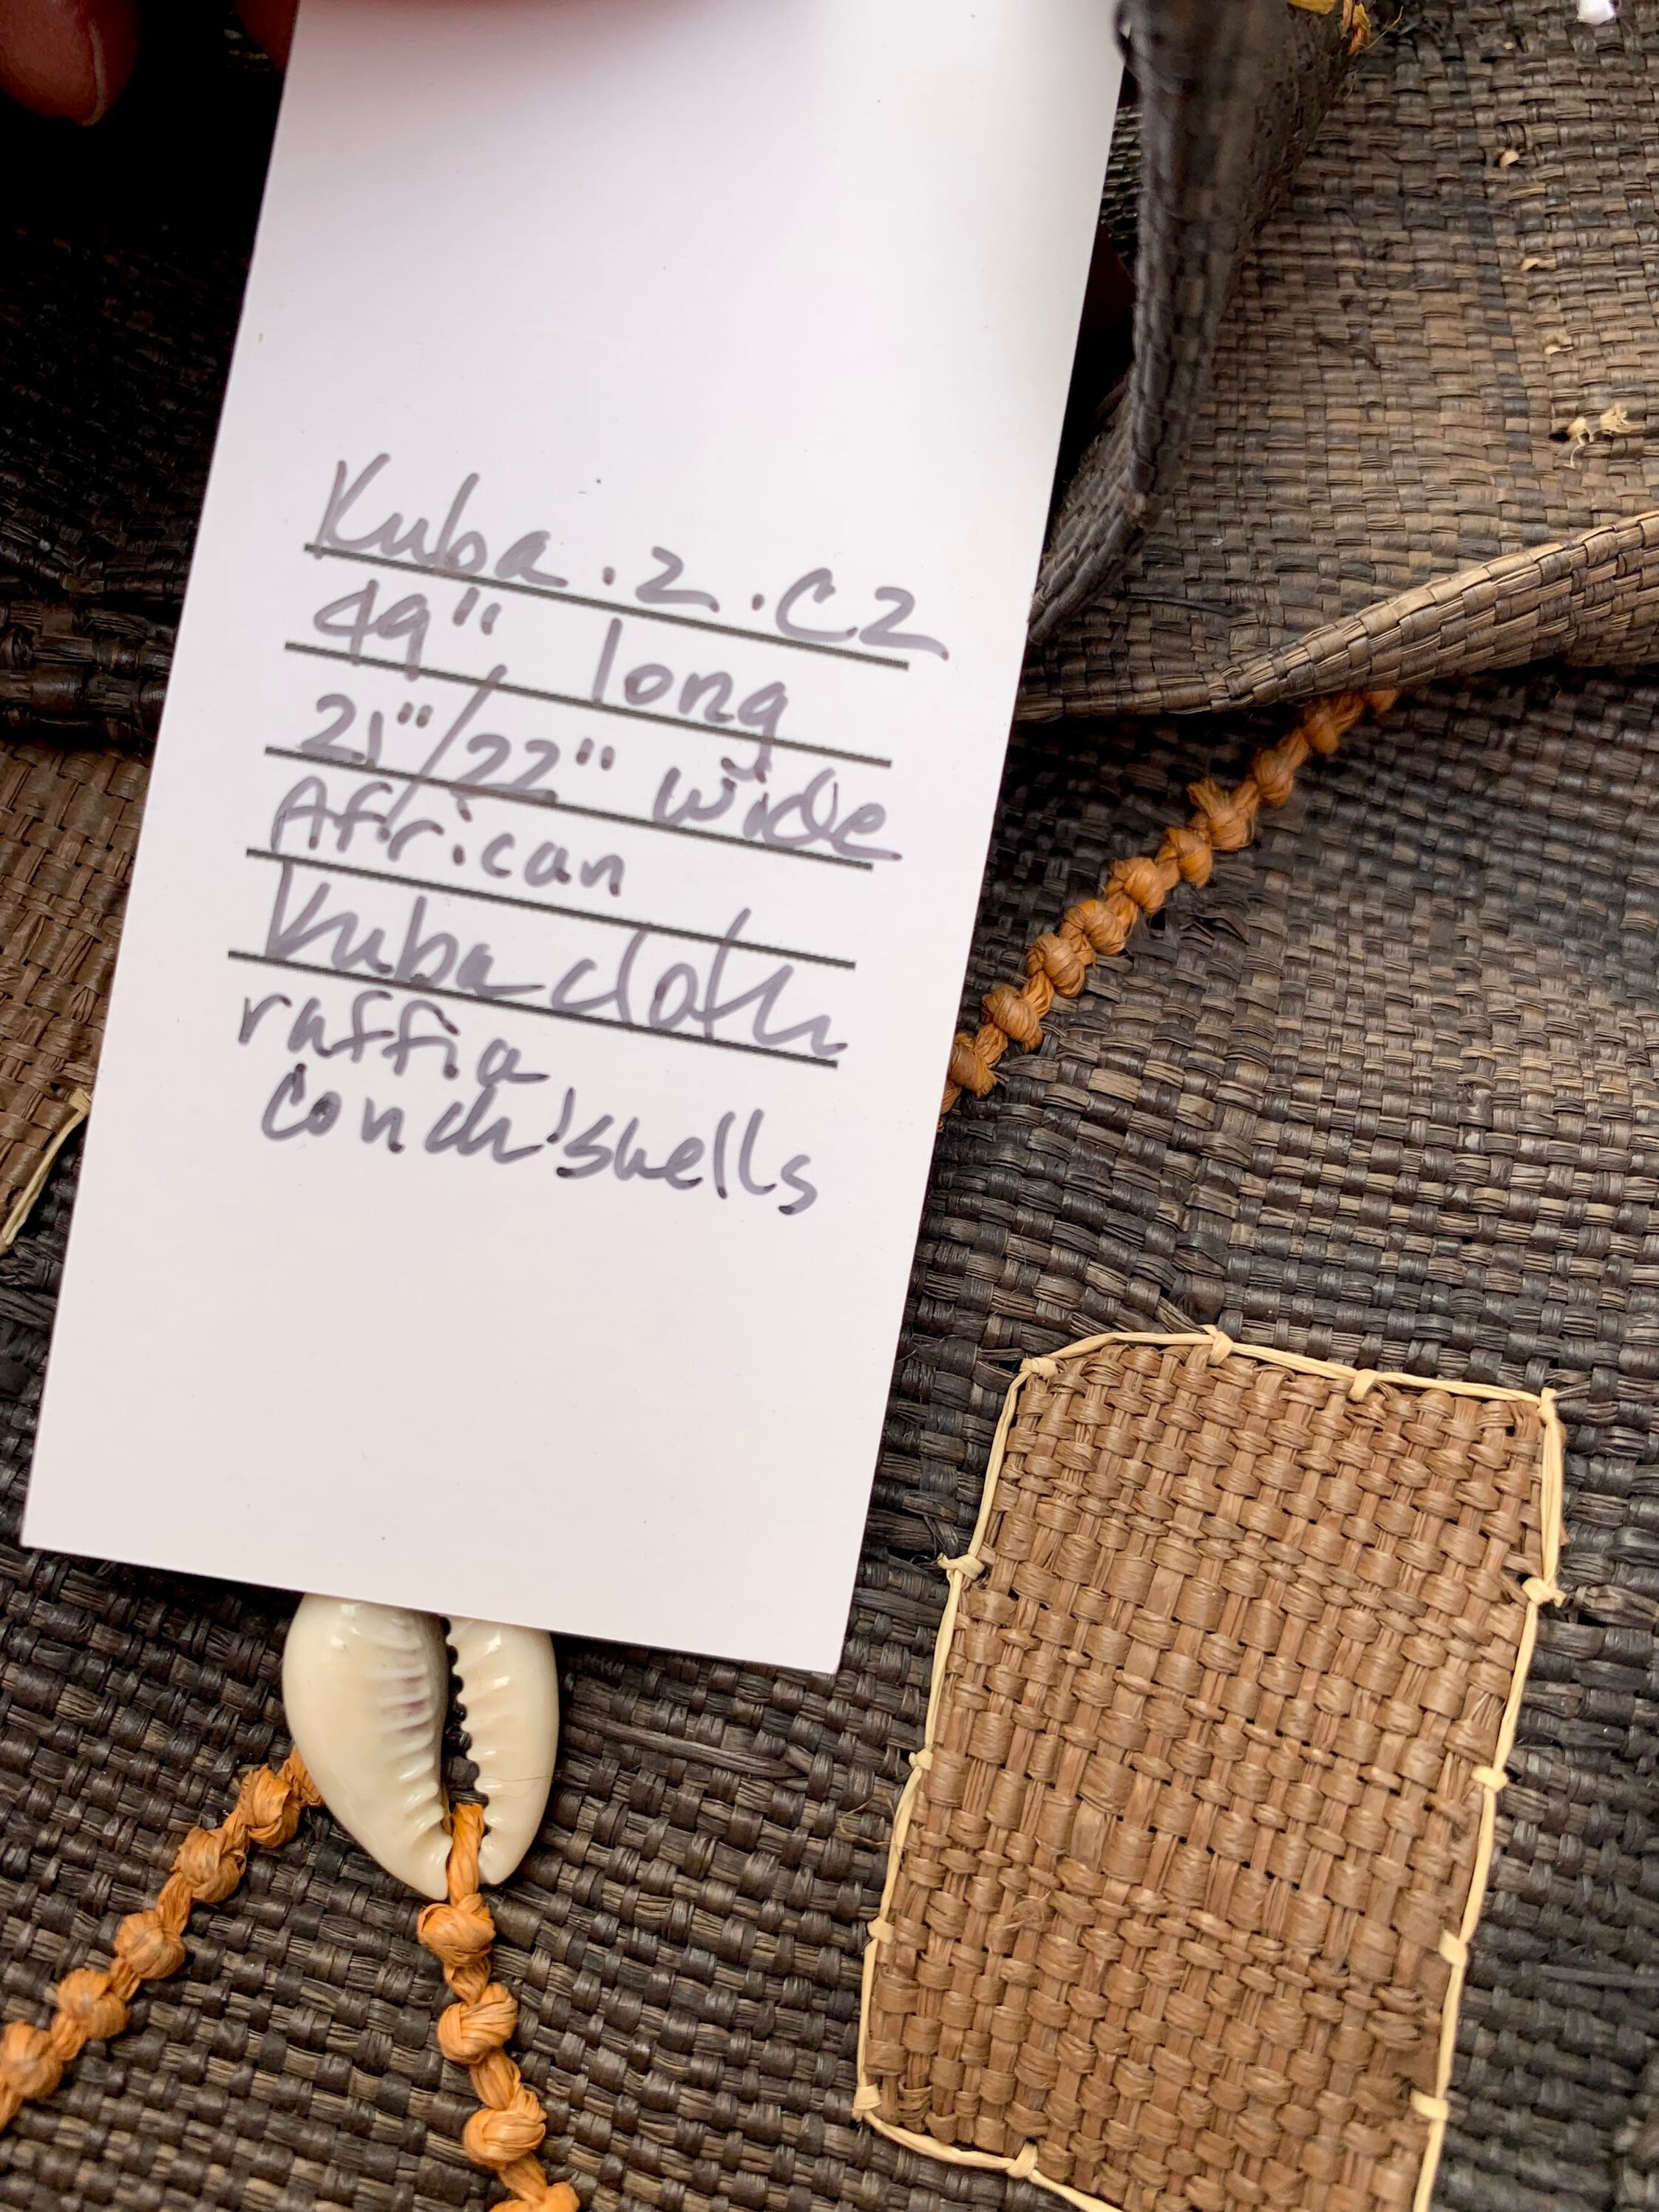 Kuba.2.C2
49" long
21"/22" wide
African
Kuba cloth
raffia
conch shells